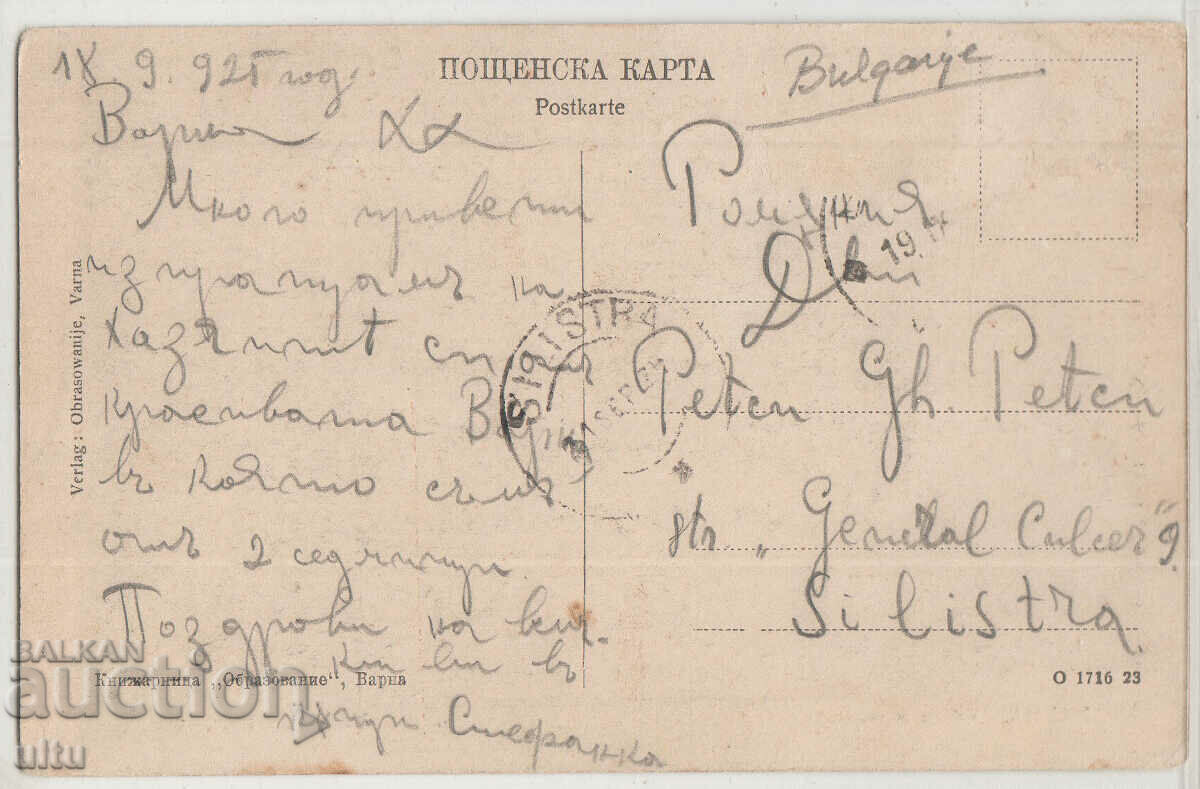 ПОЩЕНСКА КАРТА
Postkarte
Bulgarije
18. 9. 925 год
Варна
Много привети
изпращамъ на
отъ
красивата Варна
въ която съмъ
отъ 2 седмици
Поздрови на вси-
ки ви въ
Стефанка
Ромѫния
Petcu Gh. Petcu
str „General Culcer" 9.
Silistra
SILISTRA
19
Verlag: Obrasowanije, Varna
Книжарница „Образование", Варна
О 1716 23
BALKAN
auction
ultu